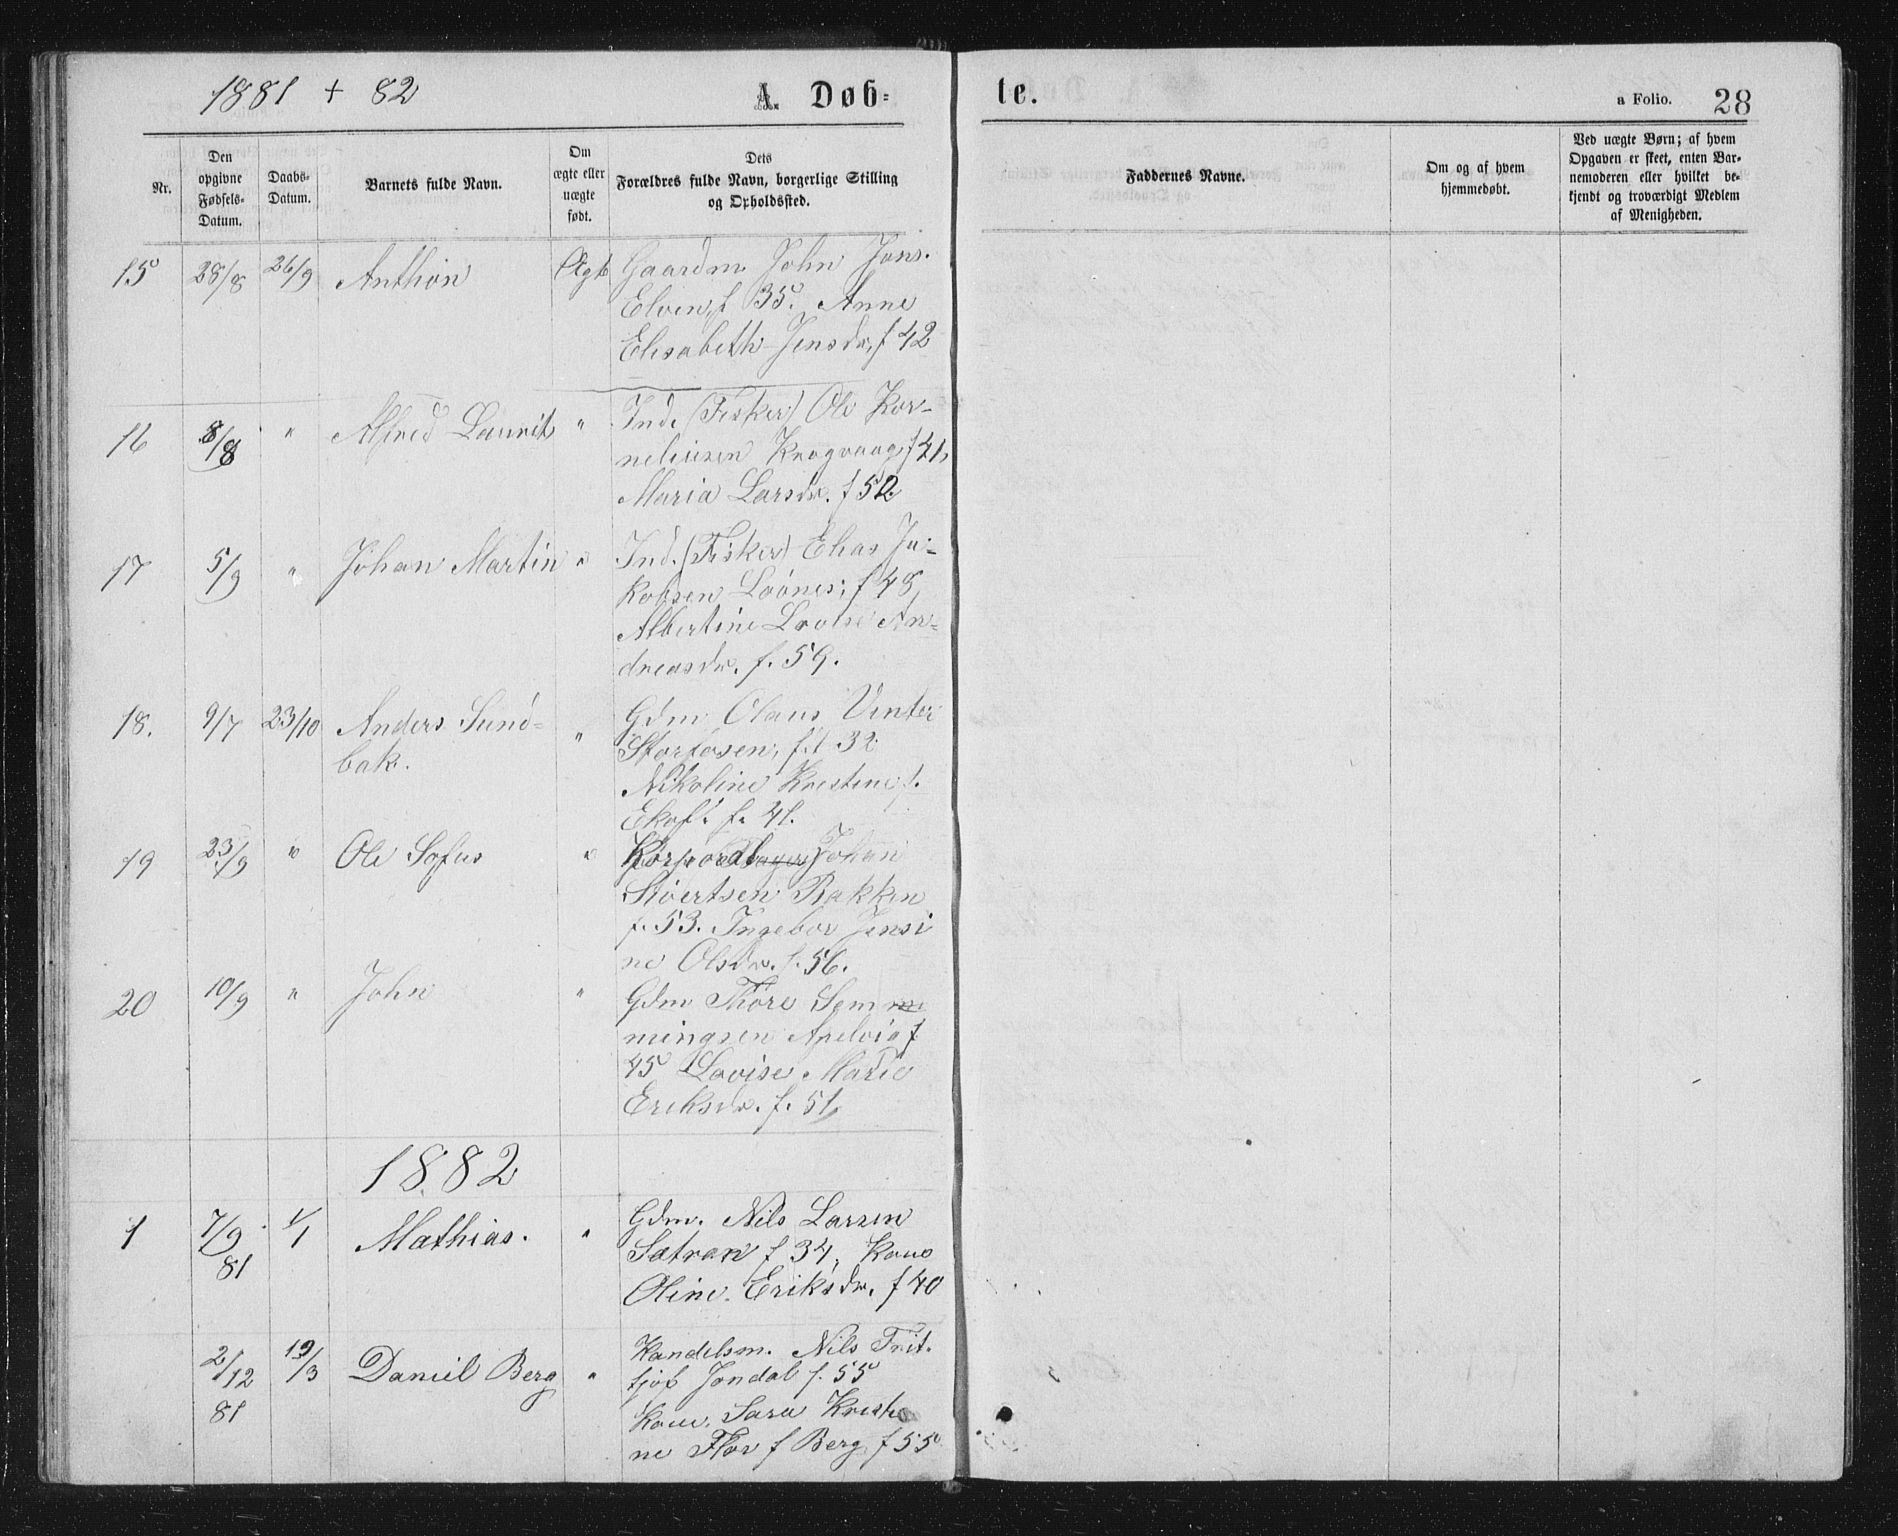 1881 + 82
A. Døb-
te.
a Folio. 28
Nr.
Den opgivne Fødsels-Datum.
Daabs-Datum.
Barnets fulde Navn.
Om ægte eller uægte født.
Dets Forældres fulde Navn, borgerlige Stilling og Opholdssted.
Faddernes Navne.
Om og af hvem hjemmedøbt.
Ved uægte Børn; af hvem Opgaven er skeet, enten Barnemoderen eller hvilket bekjendt og troværdigt Medlem af Menigheden.
15 28/8 26/9 Anthon Ægte Gaardm. John Jons.
Elven, f 35. Anne
Elisabeth Jensdr, f 42
16 8/8 " Alfred Laurits " Ind. (Fisker) Ole Kor-
neliusen Krogvaag f 41,
Maria Larsdr. f 52
17 5/9 " Johan Martin " Ind. (Fisker) Elias Ja-
kobsen f 48,
Albertine Lovise An-
dreasdr. f. 59.
18. 9/7 23/10 Anders Sund- " Gdm Olaus Vinter
bak. f. 32
Nikoline Kristine f.
f. 41.
19 23/9 " Ole Sofus " Korporal Johan
Sivertsen Bakken
f. 53. Ingebor Jensi
ne Olsdr. f. 56.
20 10/9 " John " Gdm Thore Sem
mingsen Apelvig f
45 Lovise Marie
Eriksdr. f. 51,
1882
1 7/9 81 1/1 Mathias. " Gdm. Nils Larsen
Sætran f 34, Kone
Oline Eriksdr. f 40
2/12 81 19/3 Daniel Berg " Handelsm. Nils Frit-
tjof Jøndal f. 55
Kone. Sara Kristi
ne Flor f Berg f 55